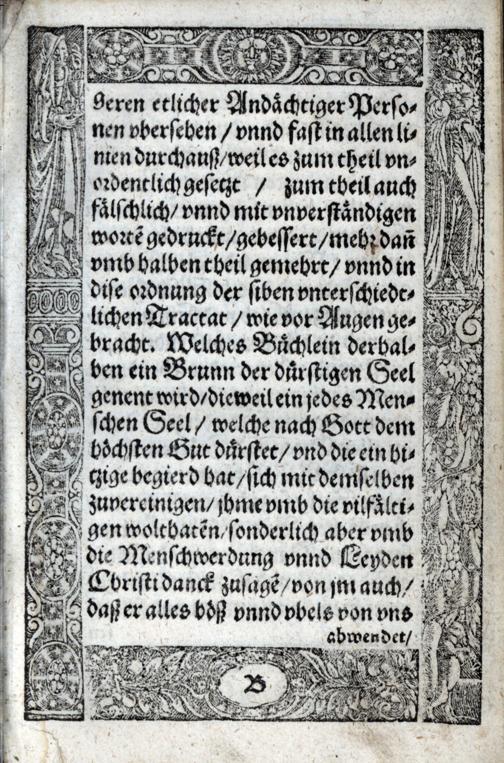 geren etlicher Andächtiger Perso-
nen vbersehen / vnnd fast in allen li-
nien durchauß/weil es zum theil vn-
ordentlich gesetzt / zum theil auch
fälschlich/ vnnd mit vnuerständigen
wortē gedruckt/gebessert/mehr dañ
vmb halben theil gemehrt/ vnnd in
dise ordnung der siben vnterschiedt-
lichen Tractat / wie vor Augen ge-
bracht. Welches Büchlein derhal-
ben ein Brunn der dürstigen Seel
genent wird/dieweil ein jedes Men-
schen Seel / welche nach Gott dem
höchsten Gut dürstet/ vnd die ein hi-
tzige begierd hat/sich mit demselben
zuvereinigen/ jhme vmb die vilfälti-
gen wolthatē/sonderlich aber vmb
die Menschwerdung vnnd Leyden
Christi danck zusagē/von jm auch/
daß er alles böß vnnd vbels von vns
abwendet/
B